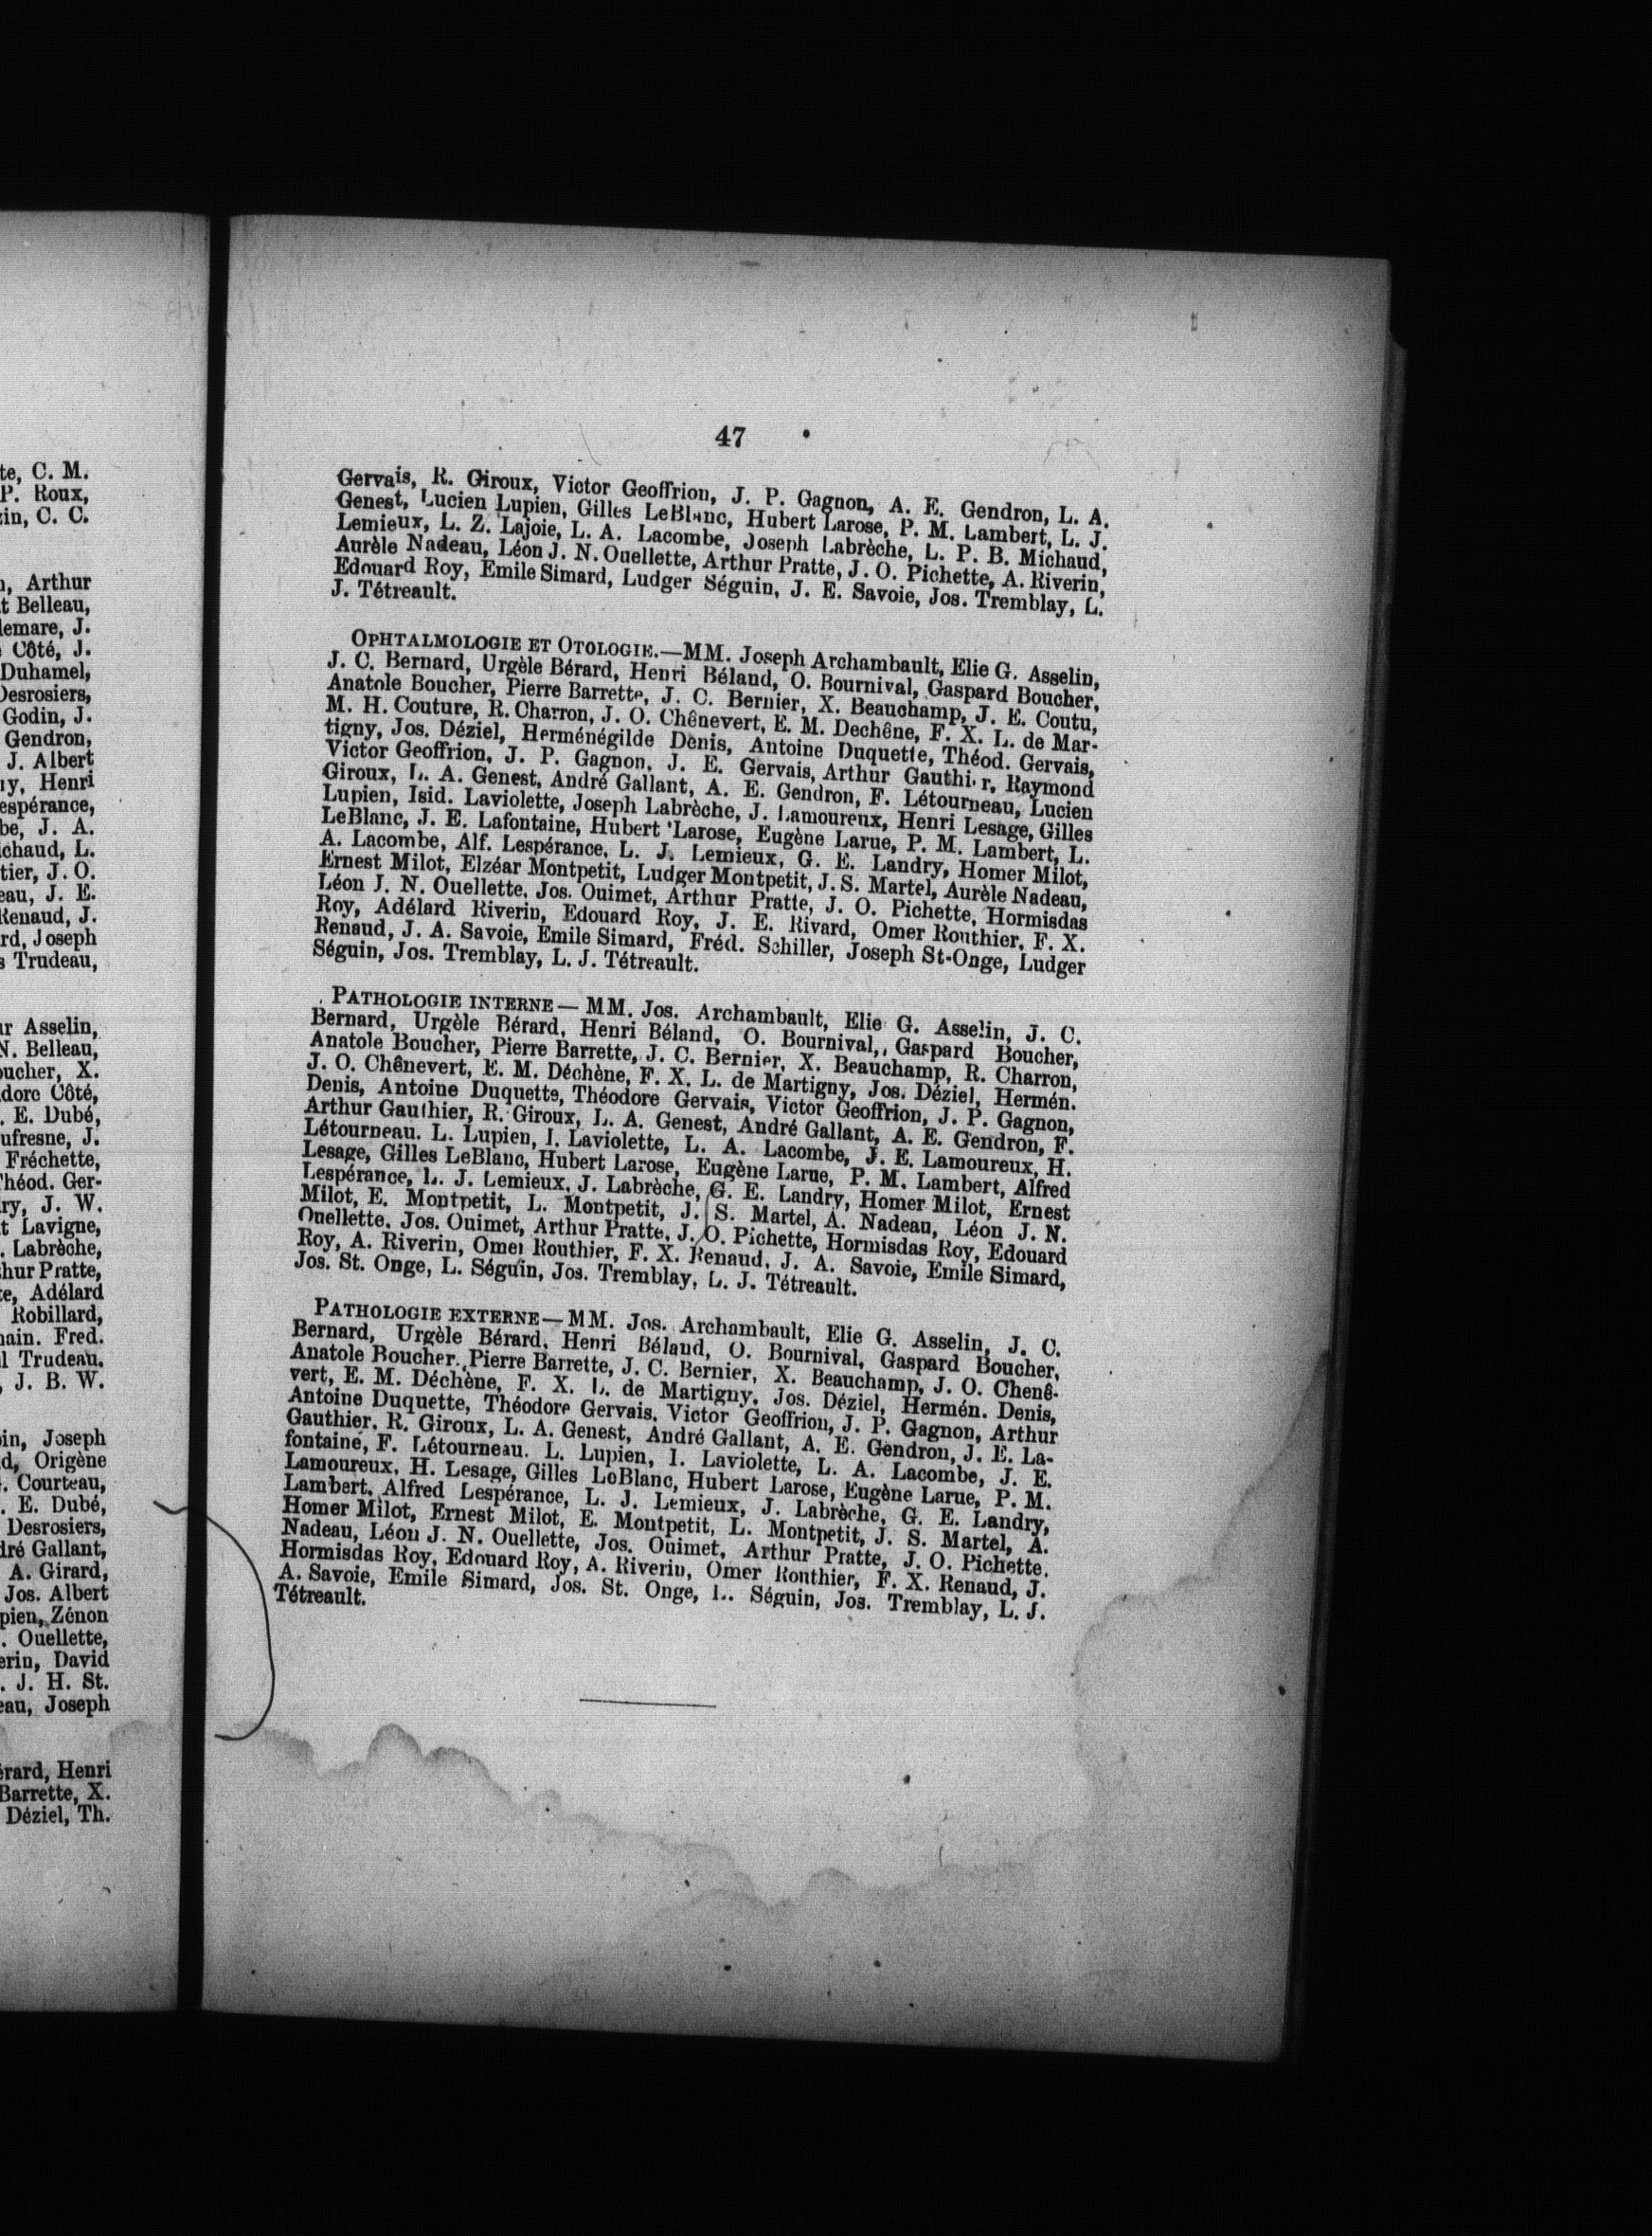 te, C. M.
P. Roux,
zin, C. C.
n, Arthur
t Belleau,
lemare, J.
Côté, J.
Duhamel,
Desrosiers,
Godin, J.
Gendron,
J. Albert
ny, Henri
espérance,
be, J. A.
ichaud, L.
tier, J. O.
eau, J. E.
Renaud, J.
rd, Joseph
s Trudeau,
ur Asselin,
N. Belleau,
oucher, X.
dore Côté,
. E. Dubé,
ufresne, J.
Fréchette,
Théod. Ger-
ry, J. W.
t Lavigne,
. Labrèche,
hur Pratte,
te, Adélard
Robillard,
nain. Fred.
l Trudeau.
, J. B. W.
oin, Joseph
d, Origène
. Courteau,
. E. Dubé,
Desrosiers,
dré Gallant,
A. Girard,
Jos. Albert
pien, Zénon
. Ouellette,
erin, David
. J. H. St.
eau, Joseph
érard, Henri
Barrette, X.
Déziel, Th.
47
Gervais, R. Giroux, Victor Geoffrion, J. P. Gagnon, A. E. Gendron, L. A.
Genest, Lucien Lupien, Gilles LeBlanc, Hubert Larose, P. M. Lambert, L. J.
Lemieux, L. Z. Lajoie, L. A. Lacombe, Joseph Labrèche, L. P. B. Michaud,
Aurèle Nadeau, Léon J. N. Ouellette, Arthur Pratte, J. O. Pichette, A. Riverin,
Edouard Roy, Emile Simard, Ludger Séguin, J. E. Savoie, Jos. Tremblay, L.
J. Tétreault.
OPHTALMOLOGIE ET OTOLOGIE.—MM. Joseph Archambault, Elie G. Asselin,
J. C. Bernard, Urgèle Bérard, Henri Béland, O. Bournival, Gaspard Boucher,
Anatole Boucher, Pierre Barrette, J. C. Bernier, X. Beauchamp, J. E. Coutu,
M. H. Couture, R. Charron, J. O. Chênevert, E. M. Dechêne, F. X. L. de Mar-
tigny, Jos. Déziel, Herménégilde Denis, Antoine Duquette, Théod. Gervais,
Victor Geoffrion, J. P. Gagnon, J. E. Gervais, Arthur Gauthier, Raymond
Giroux, L. A. Genest, André Gallant, A. E. Gendron, F. Létourneau, Lucien
Lupien, Isid. Laviolette, Joseph Labrèche, J. Lamoureux, Henri Lesage, Gilles
LeBlanc, J. E. Lafontaine, Hubert Larose, Eugène Larue, P. M. Lambert, L.
A. Lacombe, Alf. Lespérance, L. J. Lemieux, G. E. Landry, Homer Milot,
Ernest Milot, Elzéar Montpetit, Ludger Montpetit, J. S. Martel, Aurèle Nadeau,
Léon J. N. Ouellette, Jos. Ouimet, Arthur Pratte, J. O. Pichette, Hormisdas
Roy, Adélard Riverin, Edouard Roy, J. E. Rivard, Omer Routhier, F. X.
Renaud, J. A. Savoie, Emile Simard, Fréd. Schiller, Joseph St-Onge, Ludger
Séguin, Jos. Tremblay, L. J. Tétreault.
PATHOLOGIE INTERNE — MM. Jos. Archambault, Elie G. Asselin, J. C.
Bernard, Urgèle Bérard, Henri Béland, O. Bournival, Gaspard Boucher,
Anatole Boucher, Pierre Barrette, J. C. Bernier, X. Beauchamp, R. Charron,
J. O. Chênevert, E. M. Déchène, F. X. L. de Martigny, Jos. Déziel, Hermén.
Denis, Antoine Duquette, Théodore Gervais, Victor Geoffrion, J. P. Gagnon,
Arthur Gauthier, R. Giroux, L. A. Genest, André Gallant, A. E. Gendron, F.
Létourneau. L. Lupien, I. Laviolette, L. A. Lacombe, J. E. Lamoureux, H.
Lesage, Gilles LeBlanc, Hubert Larose, Eugène Larue, P. M. Lambert, Alfred
Lespérance, L. J. Lemieux, J. Labrèche, G. E. Landry, Homer Milot, Ernest
Milot, E. Montpetit, L. Montpetit, J. S. Martel, A. Nadeau, Léon J. N.
Ouellette. Jos. Ouimet, Arthur Pratte, J. O. Pichette, Hormisdas Roy, Edouard
Roy, A. Riverin, Omer Routhier, F. X. Renaud, J. A. Savoie, Emile Simard,
Jos. St. Onge, L. Séguin, Jos. Tremblay, L. J. Tétreault.
PATHOLOGIE EXTERNE — MM. Jos. Archambault, Elie G. Asselin, J. C.
Bernard, Urgèle Bérard, Henri Béland, O. Bournival, Gaspard Boucher,
Anatole Boucher, Pierre Barrette, J. C. Bernier, X. Beauchamp, J. O. Chenê-
vert, E. M. Déchène, F. X. L. de Martigny, Jos. Déziel, Hermén. Denis,
Antoine Duquette, Théodore Gervais, Victor Geoffrion, J. P. Gagnon, Arthur
Gauthier, R. Giroux, L. A. Genest, André Gallant, A. E. Gendron, J. E. La-
fontaine, F. Létourneau. L. Lupien, I. Laviolette, L. A. Lacombe, J. E.
Lamoureux, H. Lesage, Gilles LeBlanc, Hubert Larose, Eugène Larue, P. M.
Lambert, Alfred Lespérance, L. J. Lemieux, J. Labrèche, G. E. Landry,
Homer Milot, Ernest Milot, E. Montpetit, L. Montpetit, J. S. Martel, A.
Nadeau, Léon J. N. Ouellette, Jos. Ouimet, Arthur Pratte, J. O. Pichette,
Hormisdas Roy, Edouard Roy, A. Riverin, Omer Routhier, F. X. Renaud, J.
A. Savoie, Emile Simard, Jos. St. Onge, L. Séguin, Jos. Tremblay, L. J.
Tétreault.